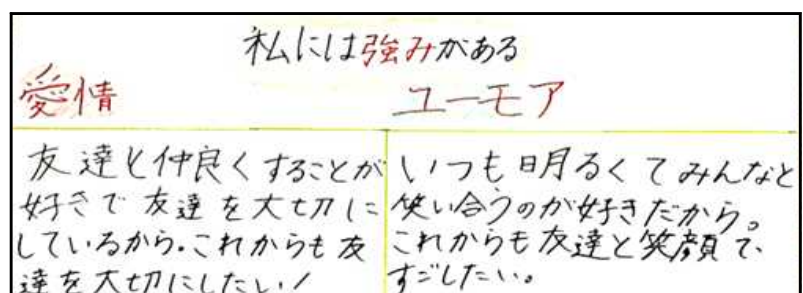 私には強みがある
愛情
友達と仲良くすることが
好きで友達を大切に
しているから。これからも友
達を大切にしたい！
ユーモア
いつも明るくてみんなと
笑い合うのが好きだから。
これからも友達と笑顔で、
すごしたい。